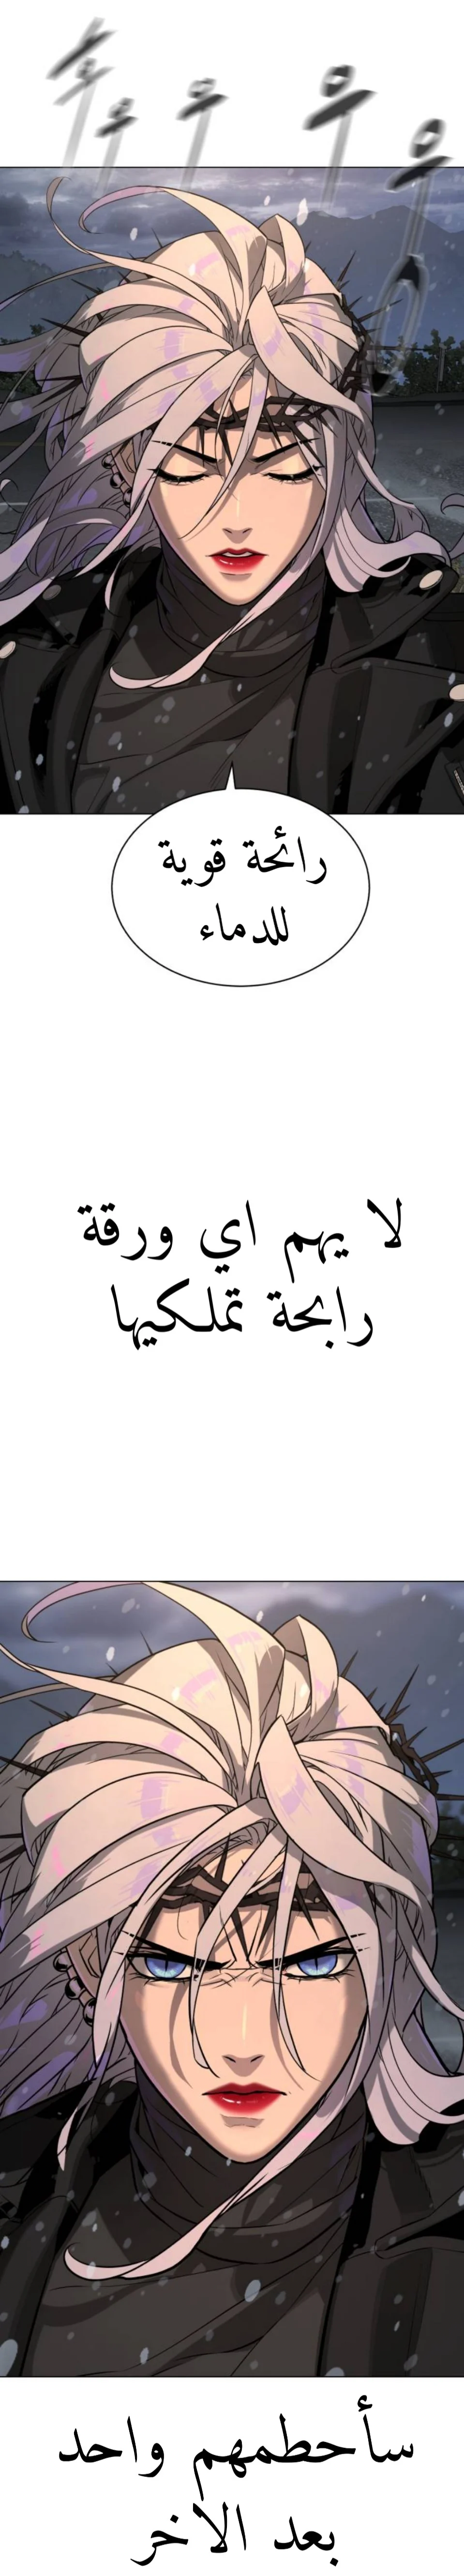 후우우우웅
رائحة قوية
للدماء
لا يهم اي ورقة
رابحة تملكيها
سأحطمهم واحد
بعد الاخر